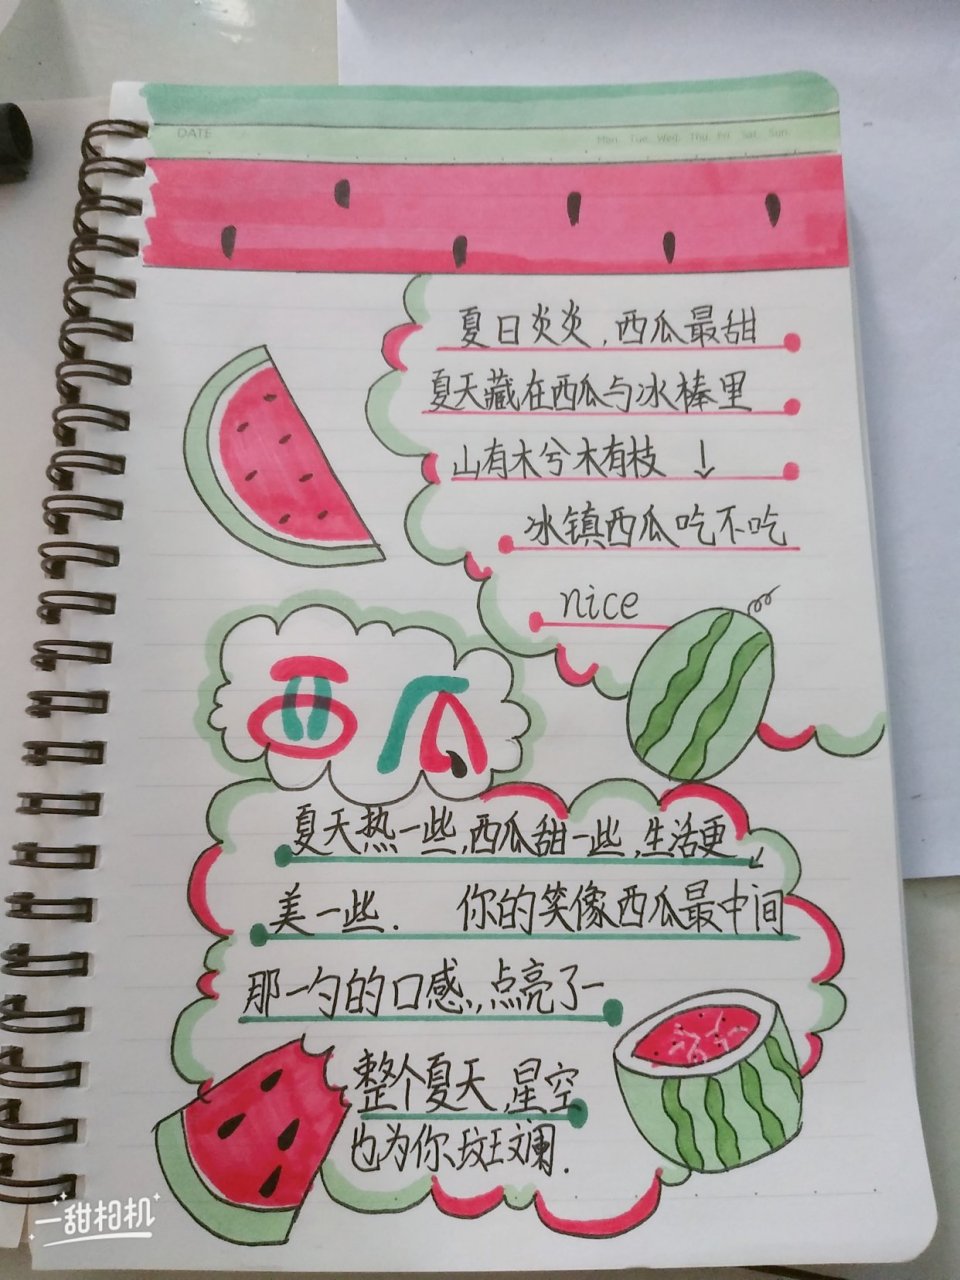 DATE
Mon. Tue. Wed. Thu. Fri. Sat. Sun.
夏日炎炎,西瓜最甜
夏天藏在西瓜与冰棒里
山有木兮木有枝 ↓
冰镇西瓜吃不吃
nice
西瓜
夏天热一些,西瓜甜一些,生活更↙
美一些. 你的笑像西瓜最中间
那一勺的口感,点亮了一
整个夏天,星空
也为你斑斓.
一甜相机